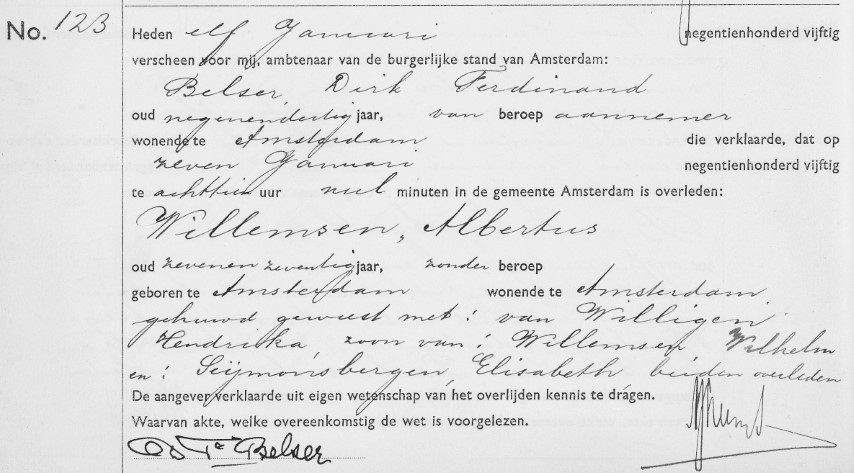 No. 123
Heden elf Januari negentienhonderd vijftig
verscheen voor mij, ambtenaar van de burgerlijke stand van Amsterdam:
Belser, Dirk Ferdinand
oud negenendertig jaar, van beroep aannemer
wonende te Amsterdam die verklaarde, dat op
zeven Januari negentienhonderd vijftig
te achttien uur nul minuten in de gemeente Amsterdam is overleden:
Willemsen, Albertus
oud zevenenzeventig jaar, zonder beroep
geboren te Amsterdam wonende te Amsterdam,
gehuwd geweest met: van Willigen,
Hendrika, zoon van: Willemsen, Wilhelm
en: Seijmonsbergen, Elisabeth beiden overleden
De aangever verklaarde uit eigen wetenschap van het overlijden kennis te dragen.
Waarvan akte, welke overeenkomstig de wet is voorgelezen.
Belser